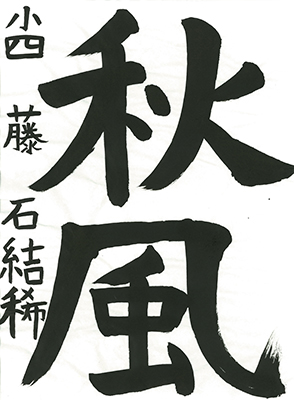 秋風
小四 藤石結稀